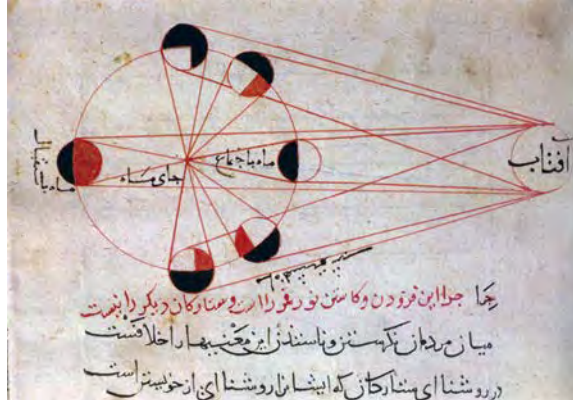 افتاب
ماه باجتماع
جای ماه
ماه باستقبال
جرا این فزودن و کاستن نور قمر را است و ستارکان دیکر را نیست
میان مردمان این معنیها را خلافست
در روشنای ستارکان که ایشانرا روشنای از خویشتن است